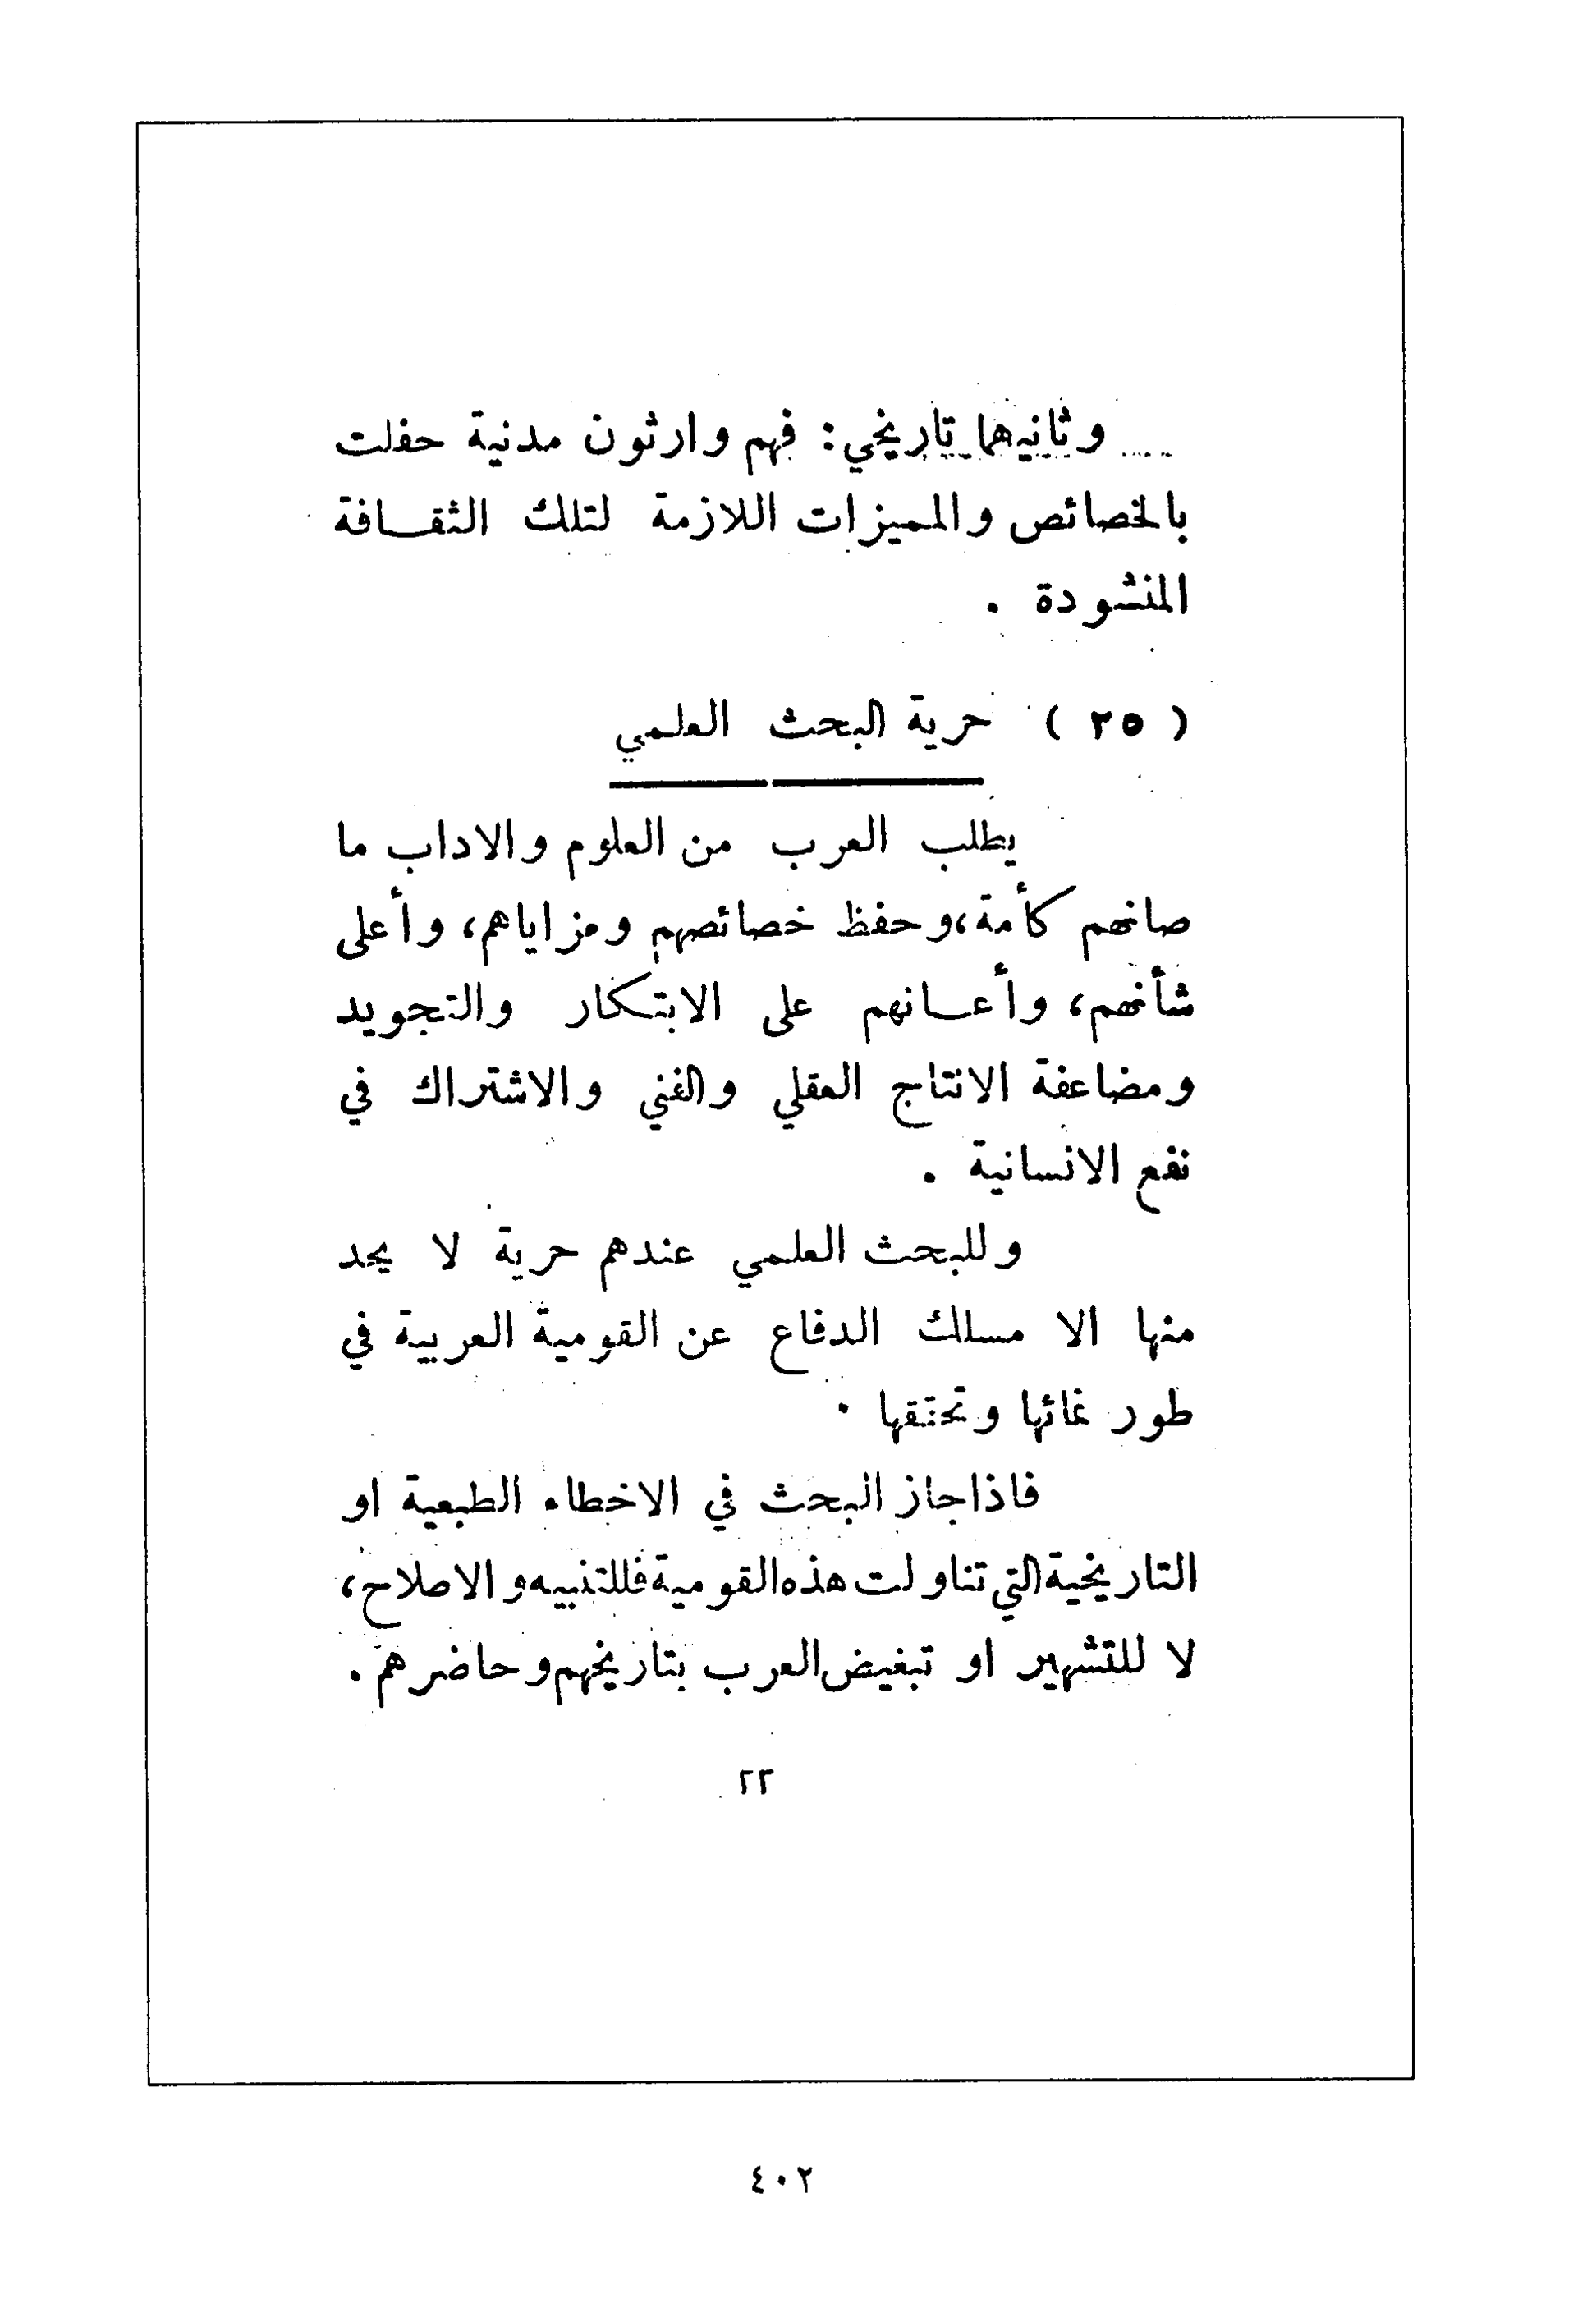 وثانيهما تاريخي: فهم وارثون مدنية حفلت
بالخصائص والمميزات اللازمة لتلك الثقـافة
المنشودة .
( ٢٥ ) حرية البحث العلمي
يطلب العرب من العلوم والاداب ما
صانهم كأمة، وحفظ خصائصهم ومزاياهم، وأعلى
شأنهم، وأعـانهم على الابتكار والتجويد
ومضاعفة الانتاج العقلي والفني والاشتراك في
نفع الانسانية .
وللبحث العلمي عندهم حرية لا يحد
منها الا مسلك الدفاع عن القومية العربية في
طور نمائها وتحققها .
فاذا جاز البحث في الاخطاء الطبعية او
التاريخية التي تناولت هذه القومية فللتنبيه والاصلاح،
لا للتشهير او تبغيض العرب بتاريخهم وحاضرهم .
٢٢
٤٠٢